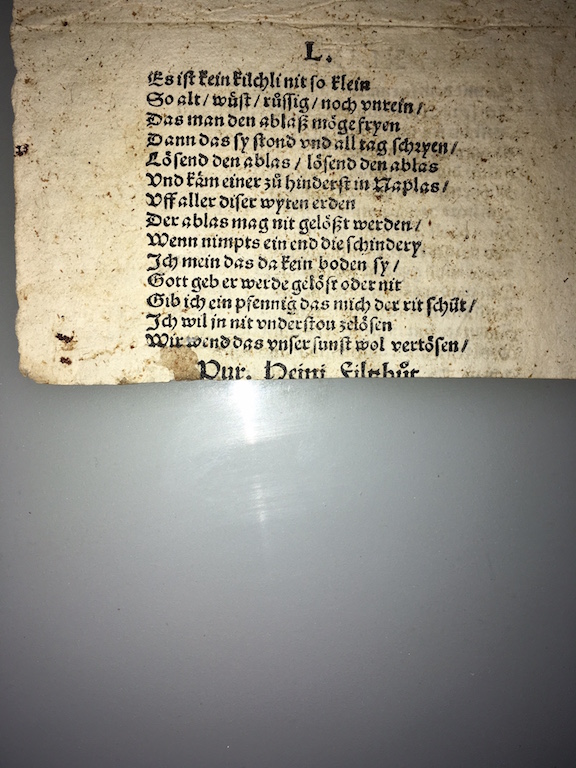 L.
Es ist kein kilchli nit so klein
So alt / wüst / rüssig / noch vnrein /
Das man den ablaß möge fryen
Dann das sy stond vnd all tag schryen /
Lösend den ablas / lösend den ablas
Vnd käm einer zů hinderst in Naplas /
Vff aller diser wyten erden
Der ablas mag nit gelößt werden /
Wenn nimpts ein end die schindery
Ich mein das da kein boden sy /
Gott geb er werde gelöst oder nit
Gib ich ein pfennig das mich der rit schüt /
Ich wil in nit vnderston zelösen
Wir wend das vnser sunst wol vertösen /
Pur. Heini Filtzhůt